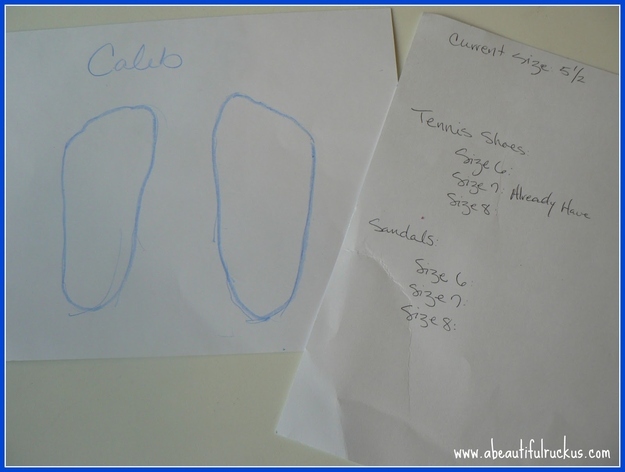 Caleb
Current Size: 5 1/2
Tennis Shoes
Size 6:
Size 7: Already Have
Size 8:
Sandals:
Size 6:
Size 7:
Size 8:
www.abeautifulruckus.com